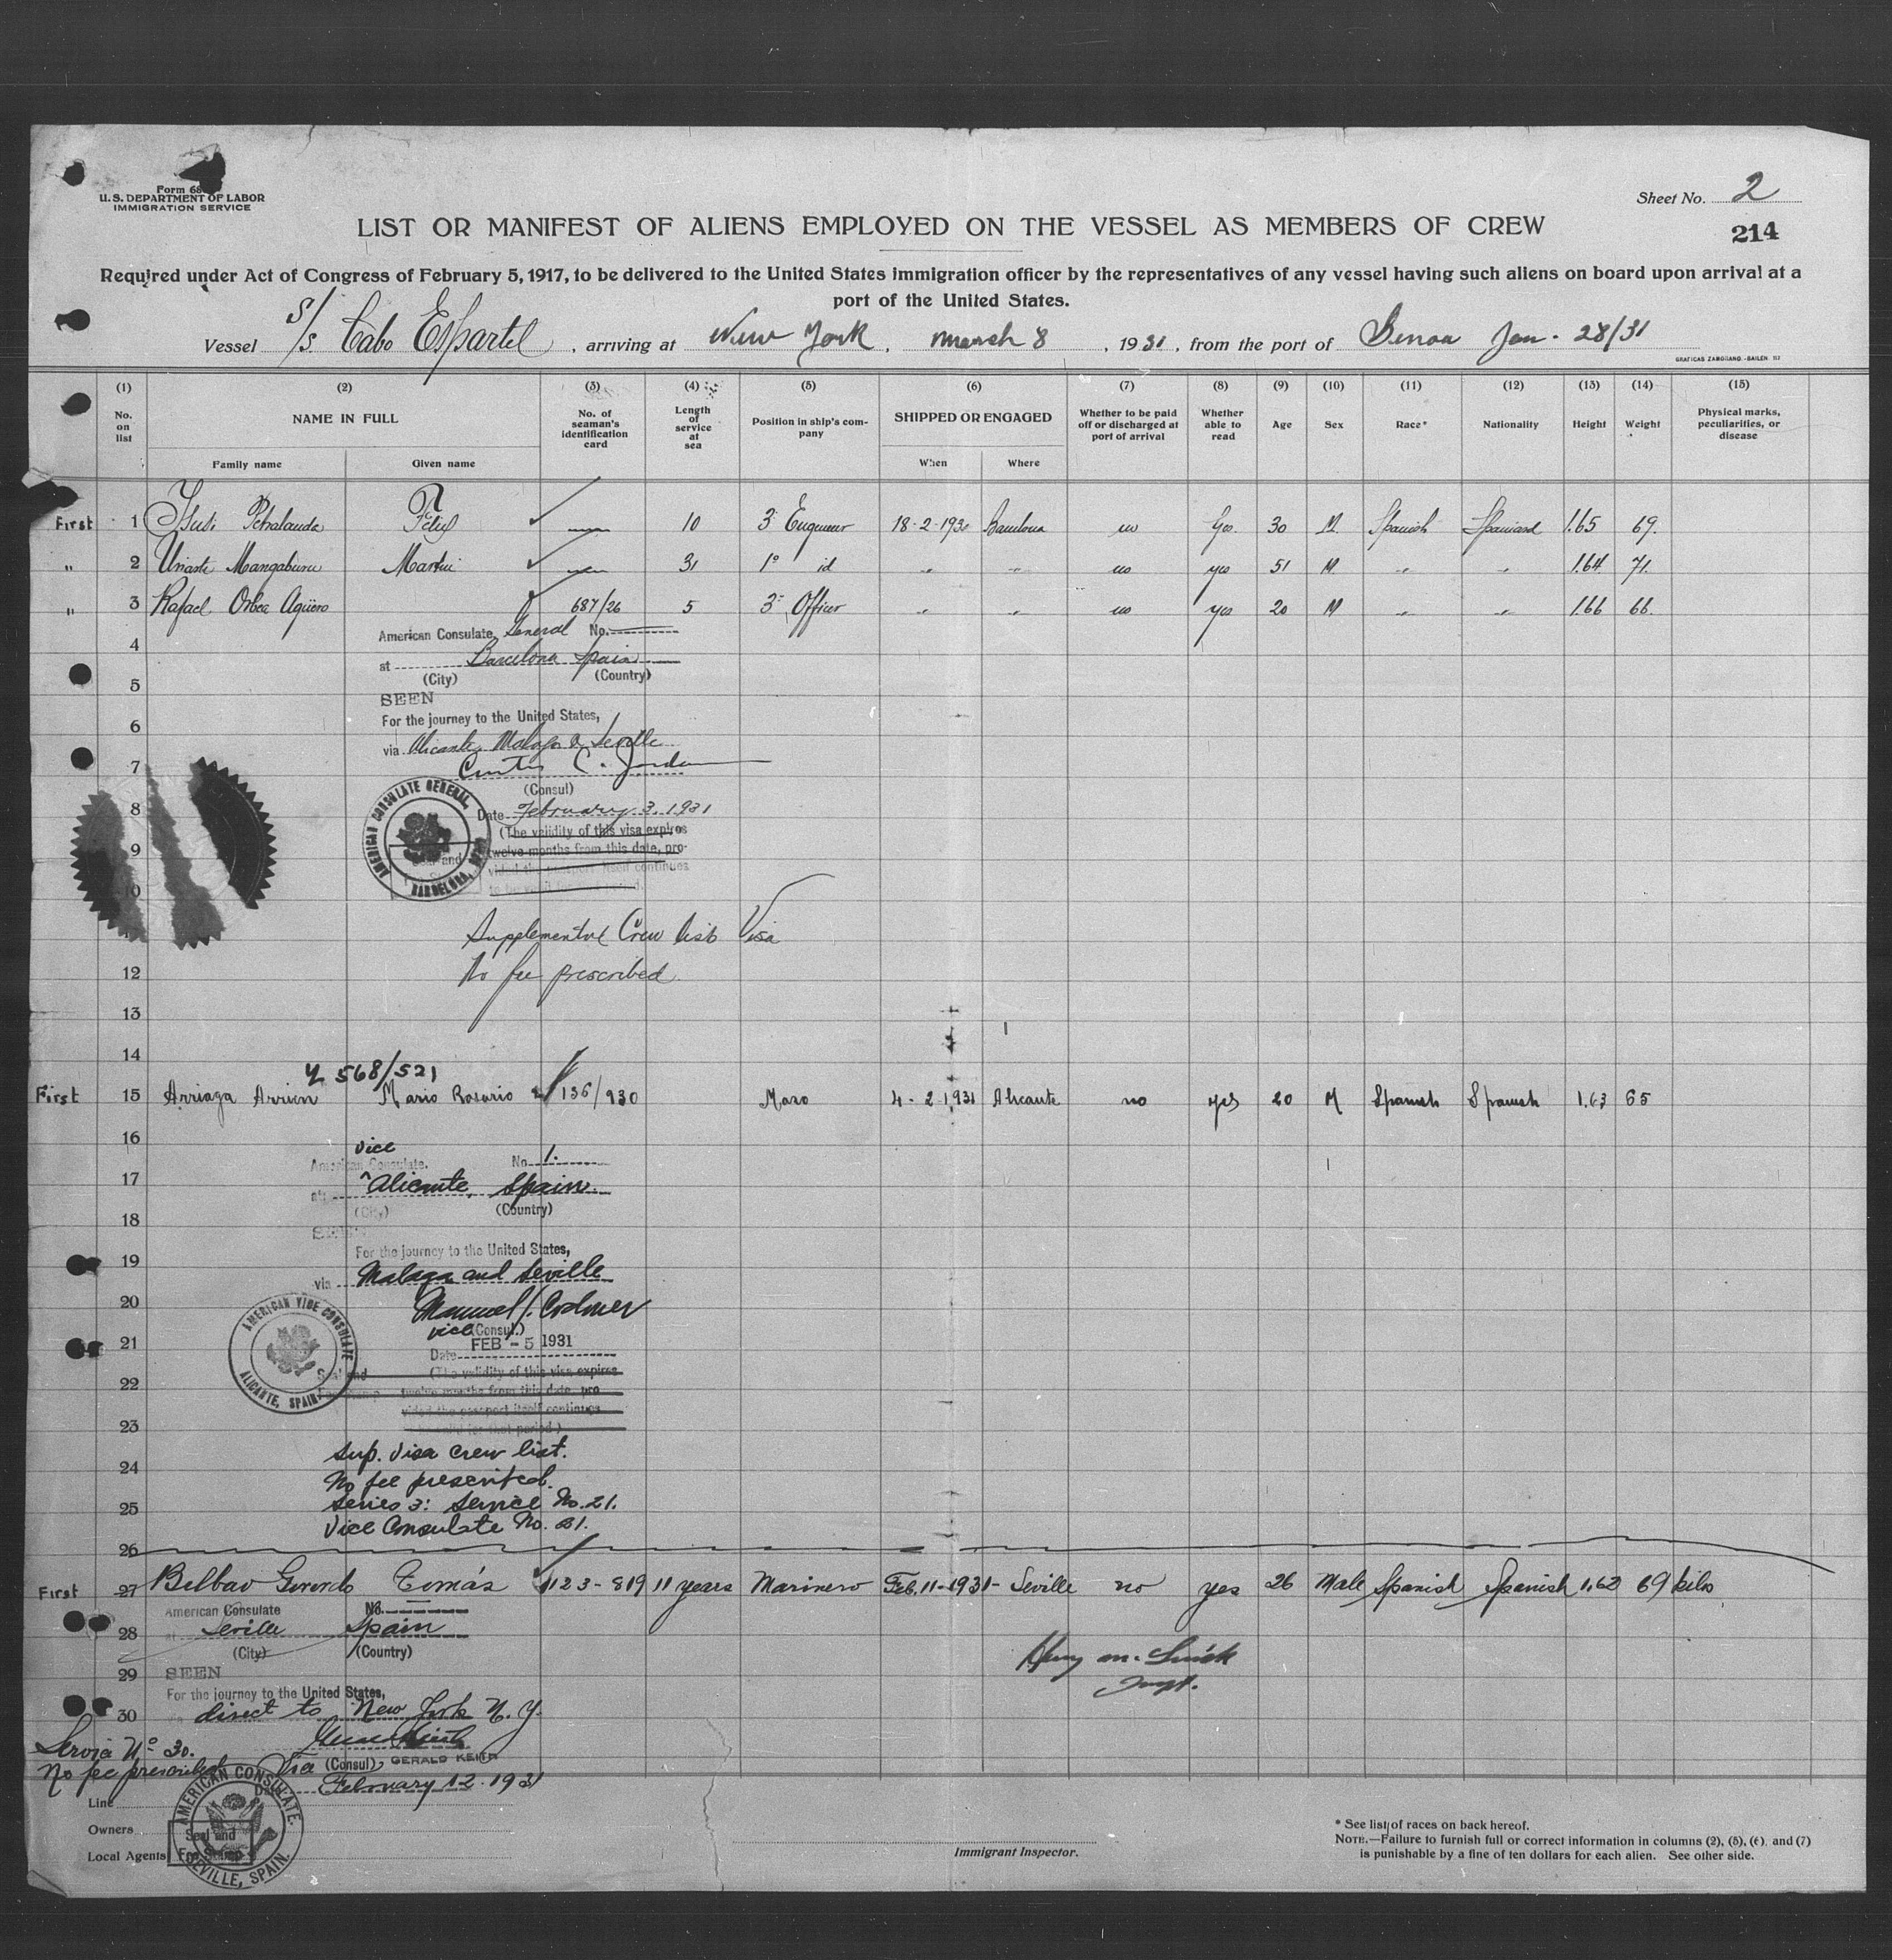 Form 68
U. S. DEPARTMENT OF LABOR
IMMIGRATION SERVICE
Sheet No. 2
214
LIST OR MANIFEST OF ALIENS EMPLOYED ON THE VESSEL AS MEMBERS OF CREW
Required under Act of Congress of February 5, 1917, to be delivered to the United States immigration officer by the representatives of any vessel having such aliens on board upon arrival at a
port of the United States.
Vessel S/S. Cabo Espartel, arriving at New York, March 8, 1931, from the port of Genoa Jan. 28/31
GRAFICAS ZAMORANO.-BAILEN
(1) (2) (3) (4) (5) (6) (7) (8) (9) (10) (11) (12) (13) (14) (15)
No. on list NAME IN FULL No. of seaman's identification card Length of service at sea Position in ship's company SHIPPED OR ENGAGED Whether to be paid off or discharged at port of arrival Whether able to read Age Sex Race* Nationality Height Weight Physical marks, peculiarities, or disease
Family name Given name When Where
First 1 Felix 10 3º Engineer 18-2-1930 Barcelona no Yes. 30 M. Spanish Spaniard 1.65 69.
" 2 Uriarte Mangaburu Martin 31 1º id " " no yes 51 M " " 1.64 71.
" 3 Rafael Orbea Agüero 687/26 5 3º Officer " " no yes 20 M " " 1.66 66.
American Consulate General No.
4
at Barcelona Spain
(City) (Country)
5
SEEN
For the journey to the United States,
6
via Alicante, Malaga & Seville
7
Curtis C. Jordan
(Consul)
8
Date February 3, 1931
(The validity of this visa expires
9
twelve months from this date, pro-
vided the passport itself continues
10
AMERICAN CONSULATE GENERAL, BARCELONA,
Supplemental Crew List Visa
12
No fee prescribed.
13
14
4 568/521
First 15 Arriaga Arrien Mario Rosario 136/930 Mozo 4-2-1931 Alicante no yes 20 M Spanish Spanish 1.63 65
16
Vice
American Consulate. No. 1.
17
at Alicante, Spain.
(City) (Country)
18
SEEN
For the journey to the United States,
19
via Malaga and Seville
20
Manuel
Vice (Consul)
21
Date FEB - 5 1931
AMERICAN VICE CONSULATE ALICANTE, SPAIN.
Seal and
(The validity of this visa expires
22
twelve months from this date, pro-
vided the passport itself continues
23
to be valid for that period.)
Sup. Visa crew list.
24
No fee prescribed.
25
Series 3: Service No. 21.
Vice Consulate No. 21.
26
First 27 Bilbao Tomás 123-819 11 years Marinero Feb. 11-1931- Seville no yes 26 Male Spanish Spanish 1.62 69 kilos
American Consulate No.
28
at Seville Spain
(City) (Country)
Henry M.
Inspt.
29
SEEN
For the journey to the United States,
30
direct to New York N. Y.
Service Nº 30.
No fee prescribed
Vice (Consul) GERALD KEITH
Date February 12-1931
AMERICAN CONSULATE. SEVILLE, SPAIN.
Seal and
Fee Stamp
Line
Owners
Local Agents
Immigrant Inspector.
* See list of races on back hereof.
NOTE.—Failure to furnish full or correct information in columns (2), (5), (6), and (7)
is punishable by a fine of ten dollars for each alien. See other side.